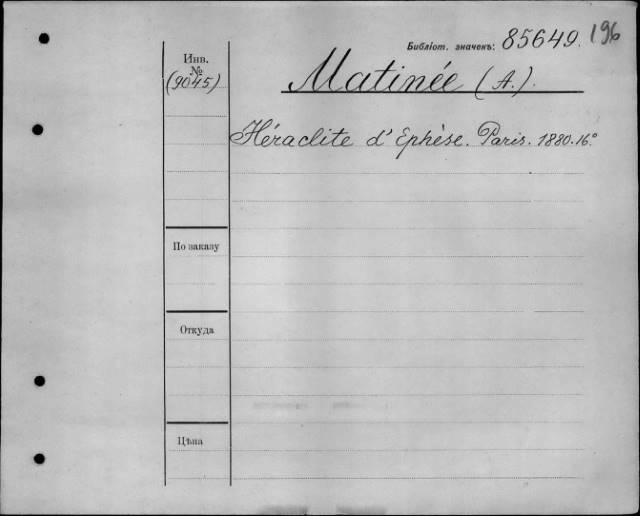 Библіот. значекъ: 85649. 196
Инв.
№
(9045)
Matinée (A.).
Héraclite d'Ephèse. Paris. 1880. 16°
По заказу
Откуда
Цѣна